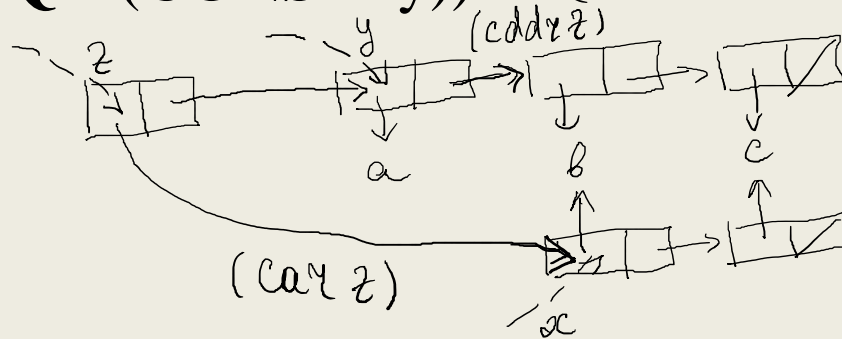 y (cddr z)
z
a b c
(car z)
x